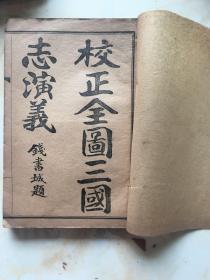 校正全圖三國
志演義
錢書城題